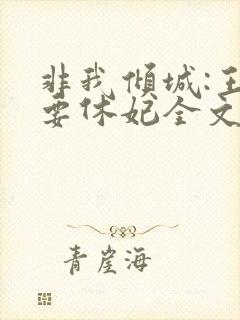 非我倾城:王
要休妃全文
青崖海